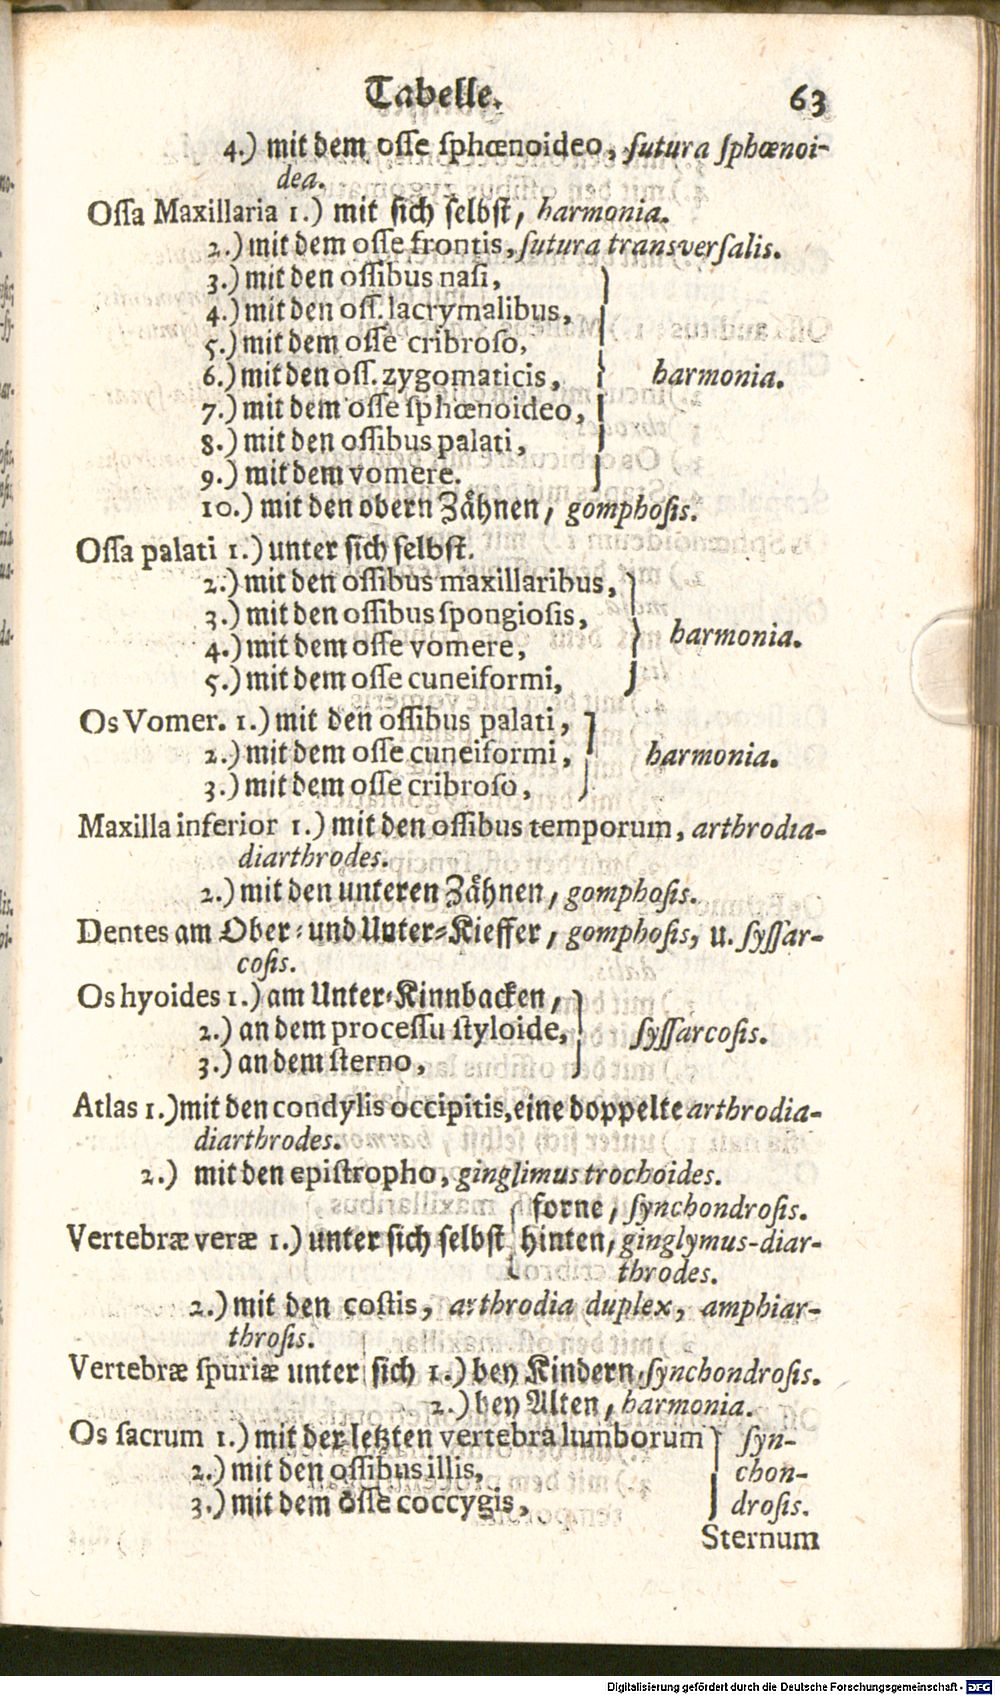 Tabelle. 63
4.) mit dem osse sphœnoideo, sutura sphœnoi-
dea.
Ossa Maxillaria 1.) mit sich selbst, harmonia.
2.) mit dem osse frontis, sutura transversalis.
3.) mit den ossibus nasi,
4.) mit den oss. lacrymalibus,
5.) mit dem osse cribroso,
6.) mit den oss. zygomaticis, } harmonia.
7.) mit dem osse sphœnoideo,
8.) mit den ossibus palati,
9.) mit dem vomere.
10.) mit den obern Zähnen, gomphosis.
Ossa palati 1.) unter sich selbst.
2.) mit den ossibus maxillaribus,
3.) mit den ossibus spongiosis,
4.) mit dem osse vomere, } harmonia.
5.) mit dem osse cuneiformi,
Os Vomer. 1.) mit den ossibus palati,
2.) mit dem osse cuneiformi, } harmonia.
3.) mit dem osse cribroso,
Maxilla inferior 1.) mit den ossibus temporum, arthrodia-
diarthrodes.
2.) mit den unteren Zähnen, gomphosis.
Dentes am Ober- und Unter-Kieffer, gomphosis, u. syssar-
cosis.
Os hyoides 1.) am Unter-Kinnbacken,
2.) an dem processu styloide, } syssarcosis.
3.) an dem sterno,
Atlas 1.) mit den condylis occipitis, eine doppelte arthrodia-
diarthrodes.
2.) mit den epistropho, ginglimus trochoides.
forne, synchondrosis.
Vertebræ veræ 1.) unter sich selbst { hinten, ginglymus-diar-
throdes.
2.) mit den costis, arthrodia duplex, amphiar-
throsis.
Vertebræ spuriæ unter sich 1.) bey Kindern, synchondrosis.
2.) bey Alten, harmonia.
Os sacrum 1.) mit der letzten vertebra lumborum } syn-
2.) mit den ossibus illis, chon-
3.) mit dem osse coccygis, drosis.
Sternum
Digitalisierung gefördert durch die Deutsche Forschungsgemeinschaft - DFG